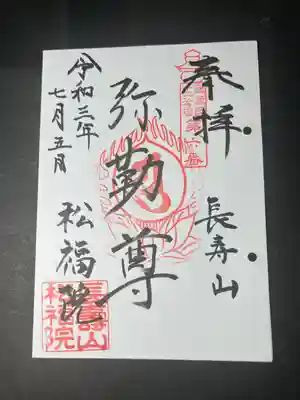 奉拝
長寿山
弥勒尊
松福院
令和三年
七月五日
長壽山
松福院